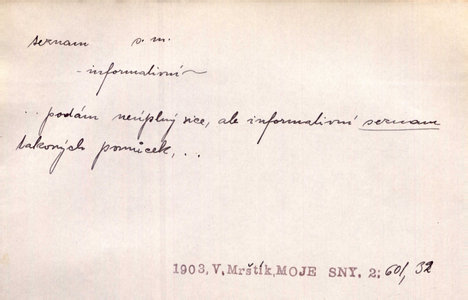 seznam s. m.
- informativní ~
.. podám neúplný sice, ale informativní seznam
takových pomůcek, ..
1903, V, Mrštík, MOJE SNY, 2; 60/, 32